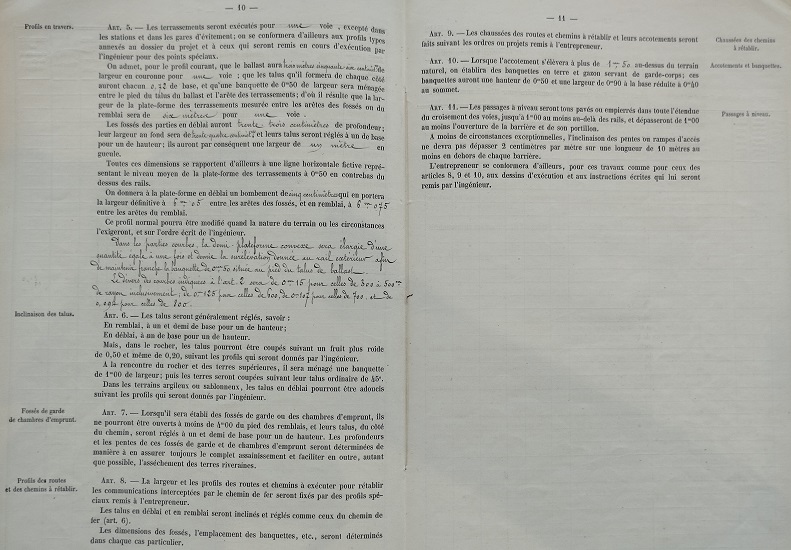 — 10 —
Profils en travers.
ART. 5. — Les terrassements seront exécutés pour une voie, excepté dans
les stations et dans les gares d'évitement; on se conformera d'ailleurs aux profils types
annexés au dossier du projet et à ceux qui seront remis en cours d'exécution par
l'ingénieur pour des points spéciaux.
On admet, pour le profil courant, que le ballast aura de
largeur en couronne pour une voie; que les talus qu'il formera de chaque côté
auront chacun de base, et qu'une banquette de 0m50 de largeur sera ménagée
entre le pied du talus du ballast et l'arête des terrassements; d'où il résulte que la lar-
geur de la plate-forme des terrassements mesurée entre les arêtes des fossés ou du
remblai sera de six mètres pour une voie.
Les fossés des parties en déblai auront trente trois centimètres de profondeur;
leur largeur au fond sera de trente quatre centimèt. et leurs talus seront réglés à un de base
pour un de hauteur; ils auront par conséquent une largeur de un mètre en
gueule.
Toutes ces dimensions se rapportent d'ailleurs à une ligne horizontale fictive repré-
sentant le niveau moyen de la plate-forme des terrassements à 0m50 en contrebas du
dessus des rails.
On donnera à la plate-forme en déblai un bombement de cinq centimètres qui en portera
la largeur définitive à 6m 05 entre les arêtes des fossés, et en remblai, à 6m 075
entre les arêtes du remblai.
Ce profil normal pourra être modifié quand la nature du terrain ou les circonstances
l'exigeront, et sur l'ordre écrit de l'ingénieur.
Dans les parties courbes, la demi-plateforme convexe sera élargie d'une
quantité égale à une fois et demie la surélévation donnée au rail extérieur afin
de maintenir franche la banquette de 0m50 située au pied du talus de ballast.
Le dévers des courbes indiquées à l'art. 2 sera de 0m15 pour celles de 300 à 500m
de rayon inclusivement; de 0m125 pour celles de 600, de 0m107 pour celles de 700 et de
0,094 pour celles de 800.
Inclinaison des talus.
ART. 6. — Les talus seront généralement réglés, savoir:
En remblai, à un et demi de base pour un de hauteur;
En déblai, à un de base pour un de hauteur.
Mais, dans le rocher, les talus pourront être coupés suivant un fruit plus roide
de 0,50 et même de 0,20, suivant les profils qui seront donnés par l'ingénieur.
A la rencontre du rocher et des terres supérieures, il sera ménagé une banquette
de 1m00 de largeur; puis les terres seront coupées suivant leur talus ordinaire de 45°.
Dans les terrains argileux ou sablonneux, les talus en déblai pourront être adoucis
suivant les profils qui seront donnés par l'ingénieur.
Fossés de garde
de chambres d'emprunt.
ART. 7. — Lorsqu'il sera établi des fossés de garde ou des chambres d'emprunt, ils
ne pourront être ouverts à moins de 4m00 du pied des remblais, et leurs talus, du côté
du chemin, seront réglés à un et demi de base pour un de hauteur. Les profondeurs
et les pentes de ces fossés de garde et de chambres d'emprunt seront déterminées de
manière à en assurer toujours le complet assainissement et faciliter en outre, autant
que possible, l'asséchement des terres riveraines.
Profils des routes
et des chemins à rétablir.
ART. 8. — La largeur et les profils des routes et chemins à exécuter pour rétablir
les communications interceptées par le chemin de fer seront fixés par des profils spé-
ciaux remis à l'entrepreneur.
Les talus en déblai et en remblai seront inclinés et réglés comme ceux du chemin de
fer (art. 6).
Les dimensions des fossés, l'emplacement des banquettes, etc., seront déterminés
dans chaque cas particulier.
— 11 —
ART. 9. — Les chaussées des routes et chemins à rétablir et leurs accotements seront
faits suivant les ordres ou projets remis à l'entrepreneur.
Chaussées des chemins
à rétablir.
ART. 10. — Lorsque l'accotement s'élèvera à plus de 1m50 au-dessus du terrain
naturel, on établira des banquettes en terre et gazon servant de garde-corps; ces
banquettes auront une hauteur de 0m50 et une largeur de 0m90 à la base réduite à 0m40
au sommet.
Accotements et banquettes.
ART. 11. — Les passages à niveau seront tous pavés ou empierrés dans toute l'étendue
du croisement des voies, jusqu'à 1m00 au moins au-delà des rails, et dépasseront de 1m00
au moins l'ouverture de la barrière et de son portillon.
A moins de circonstances exceptionnelles, l'inclinaison des pentes ou rampes d'accès
ne devra pas dépasser 2 centimètres par mètre sur une longueur de 10 mètres au
moins en dehors de chaque barrière.
L'entrepreneur se conformera d'ailleurs, pour ces travaux comme pour ceux des
articles 8, 9 et 10, aux dessins d'exécution et aux instructions écrites qui lui seront
remis par l'ingénieur.
Passages à niveau.